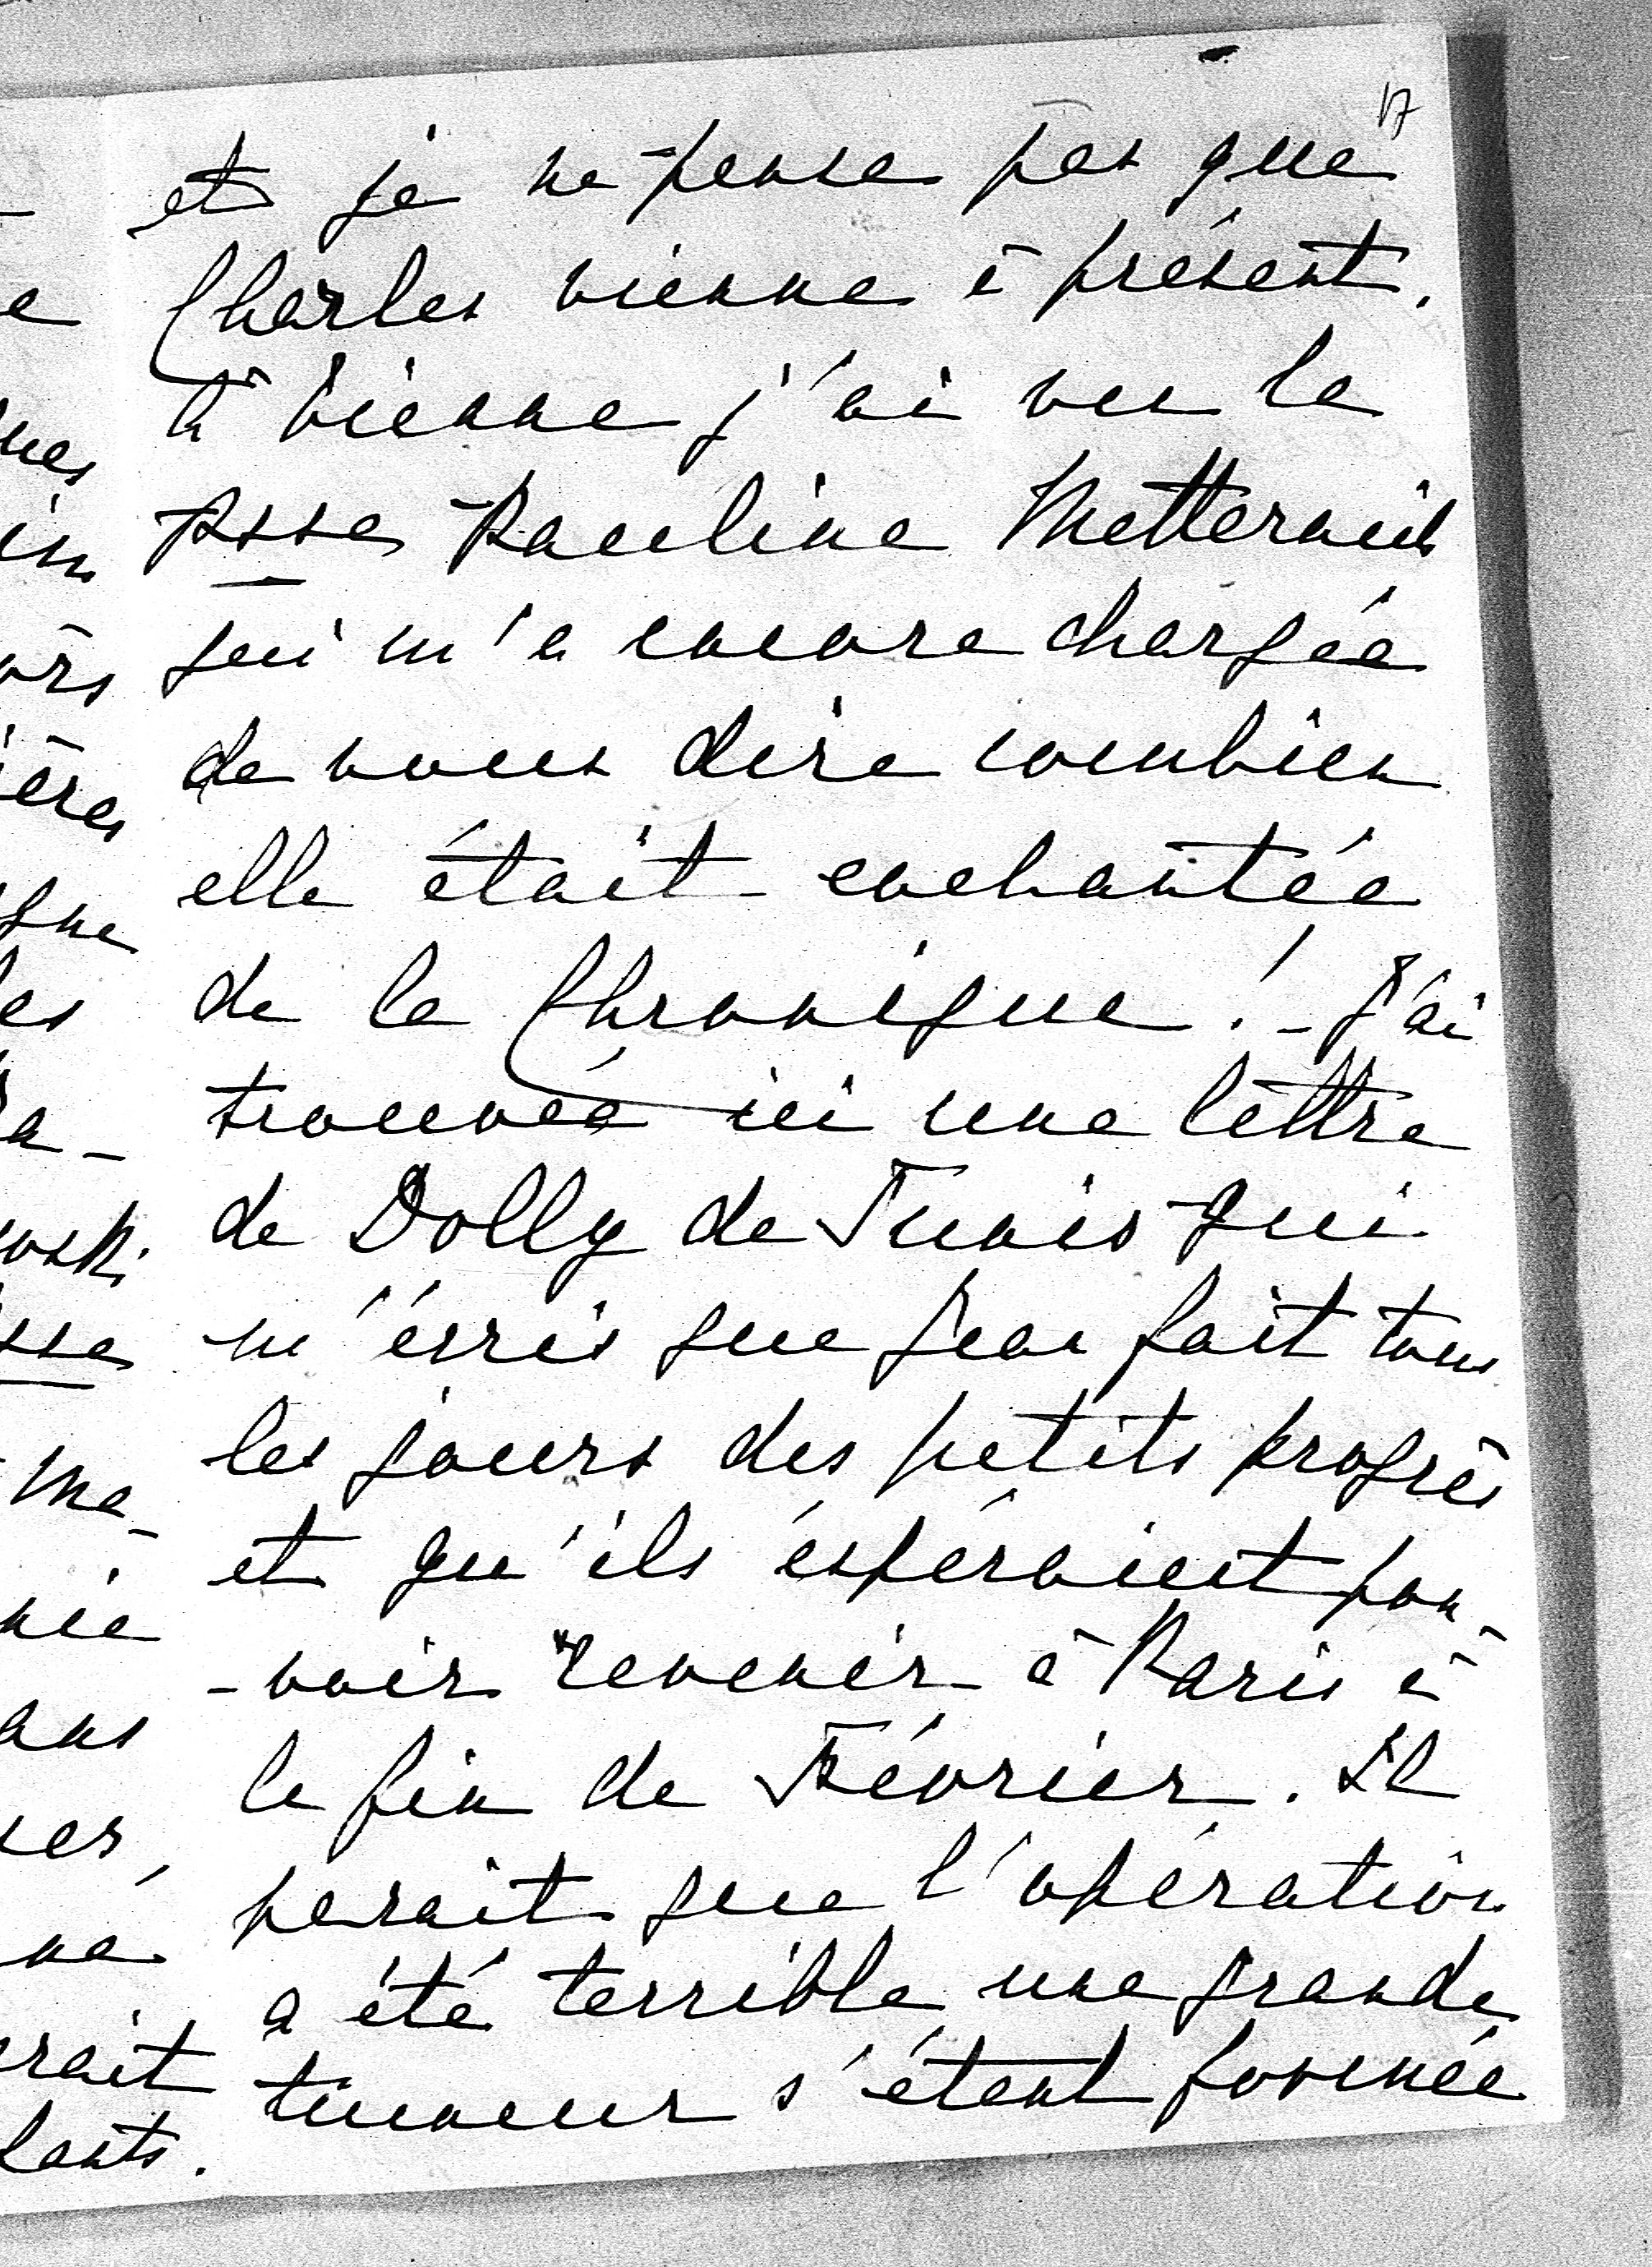 17
et je ne pense pas que
Charles vienne à présent.
à Vienne j'ai vu la
Psse Pauline Metternich
qui m'a encore chargée
de vous dire combien
elle était enchantée
de la Chronique! - J'ai
trouvé ici une lettre
de Dolly de Tunis qui
m'écris que Jean fait tous
les jours des petits progrès
et qu'ils éspéraient pou-
-voir revenir à Paris à
la fin de Février. Il
parait que l'opération
a été terrible une grande
tumeur s'étant formée